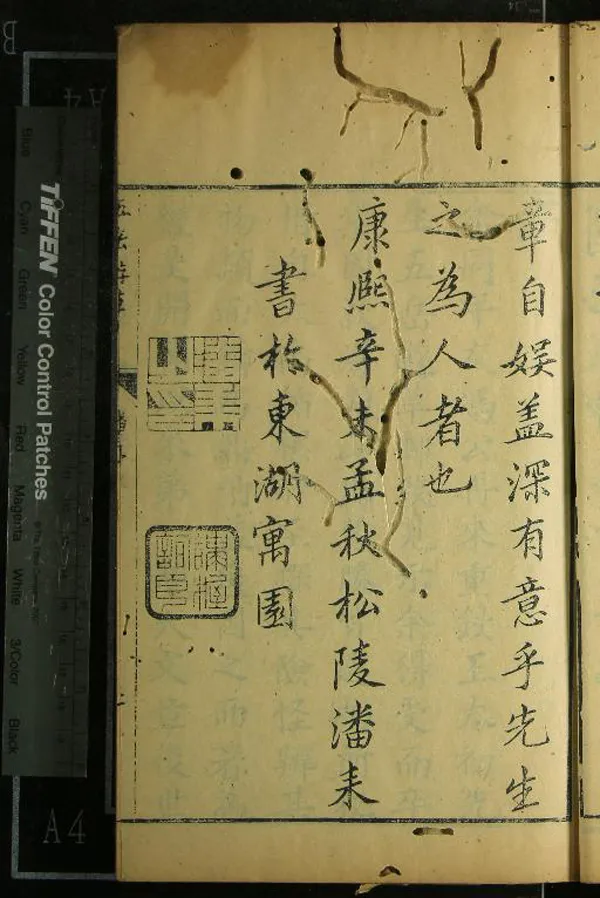 章自娱盖深有意乎先生
之為人者也
康熙辛未孟秋松陵潘耒
書於東湖寓園
TIFFEN Color Control Patches
Blue
Cyan
Green
Yellow
Red
Magenta
White
3/Color
Black
A4
A4
B